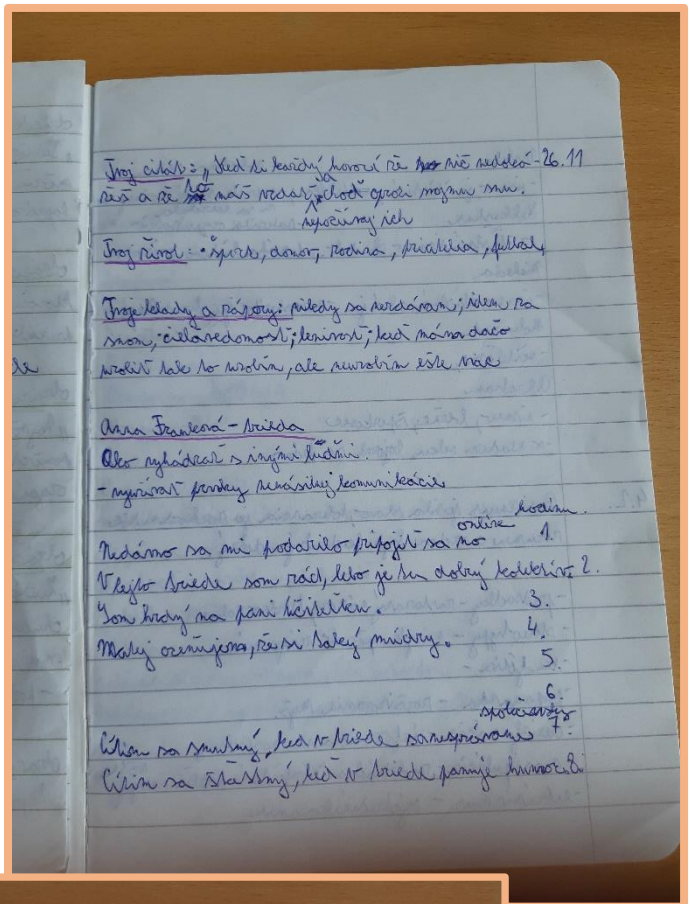 Tvoj citát: „Keď si každý hovorí že nič nedoká- 26.11
žeš a že to máš vzdať sa choď oproti svojmu snu.
nepočúvaj ich
Tvoj život: • šport, domov, rodina, priatelia, futbal,
Tvoje klady a zápory: nikdy sa nevzdávam; idem za
snom, cieľavedomosť; lenivosť; keď mám dačo
urobiť tak to urobím, ale neurobím ešte viac
Anna Franková - trieda
Ako vychádzať s inými ľuďmi.
- využívať prvky nenásilnej komunikácie
Nedávno sa mi podarilo pripojiť sa na online hodinu. 1.
V tejto triede som rád, lebo je tu dobrý kolektív. 2.
Som hrdý na pani učiteľku. 3.
Matej oceňujem, že si taký múdry. 4.
5.
6.
Cítim sa smutný, keď v triede sa nesprávame 7.
Cítim sa šťastný, keď v triede panuje humor. 8.